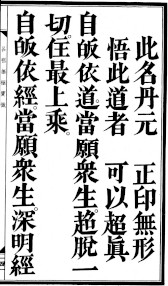 此名丹元　正印無形
悟此道者　可以超眞
自皈依道當願衆生超脫一
切住最上乘。
自皈依經當願衆生深明經